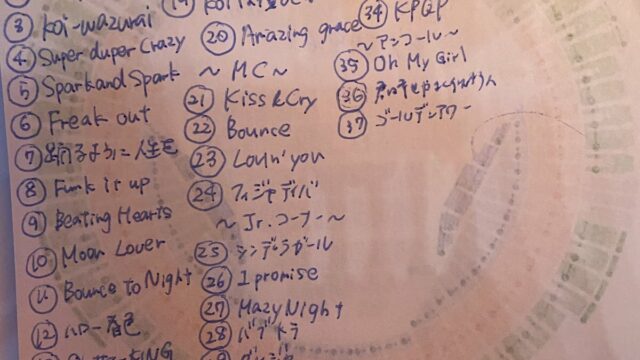 ③ koi-wazurai
④ Super duper Crazy
⑤ Spark and Spark
⑥ Freak out
⑦ 踊るように人生を
⑧ Funk it up
⑨ Beating Hearts
⑩ Moon Lover
⑪ Bounce To Night
⑫ ハロー春色
⑳ Amazing grace
～MC～
㉑ Kiss & Cry
㉒ Bounce
㉓ Lovin' you
㉔ フィジャディバ
～Jr.コーナー～
㉕ シンデレラガール
㉖ I promise
㉗ Mazy Night
㉘ バブトラ
㉞ KPQP
～アンコール～
㉟ Oh My Girl
㊱
㊲ ゴールデンアワー